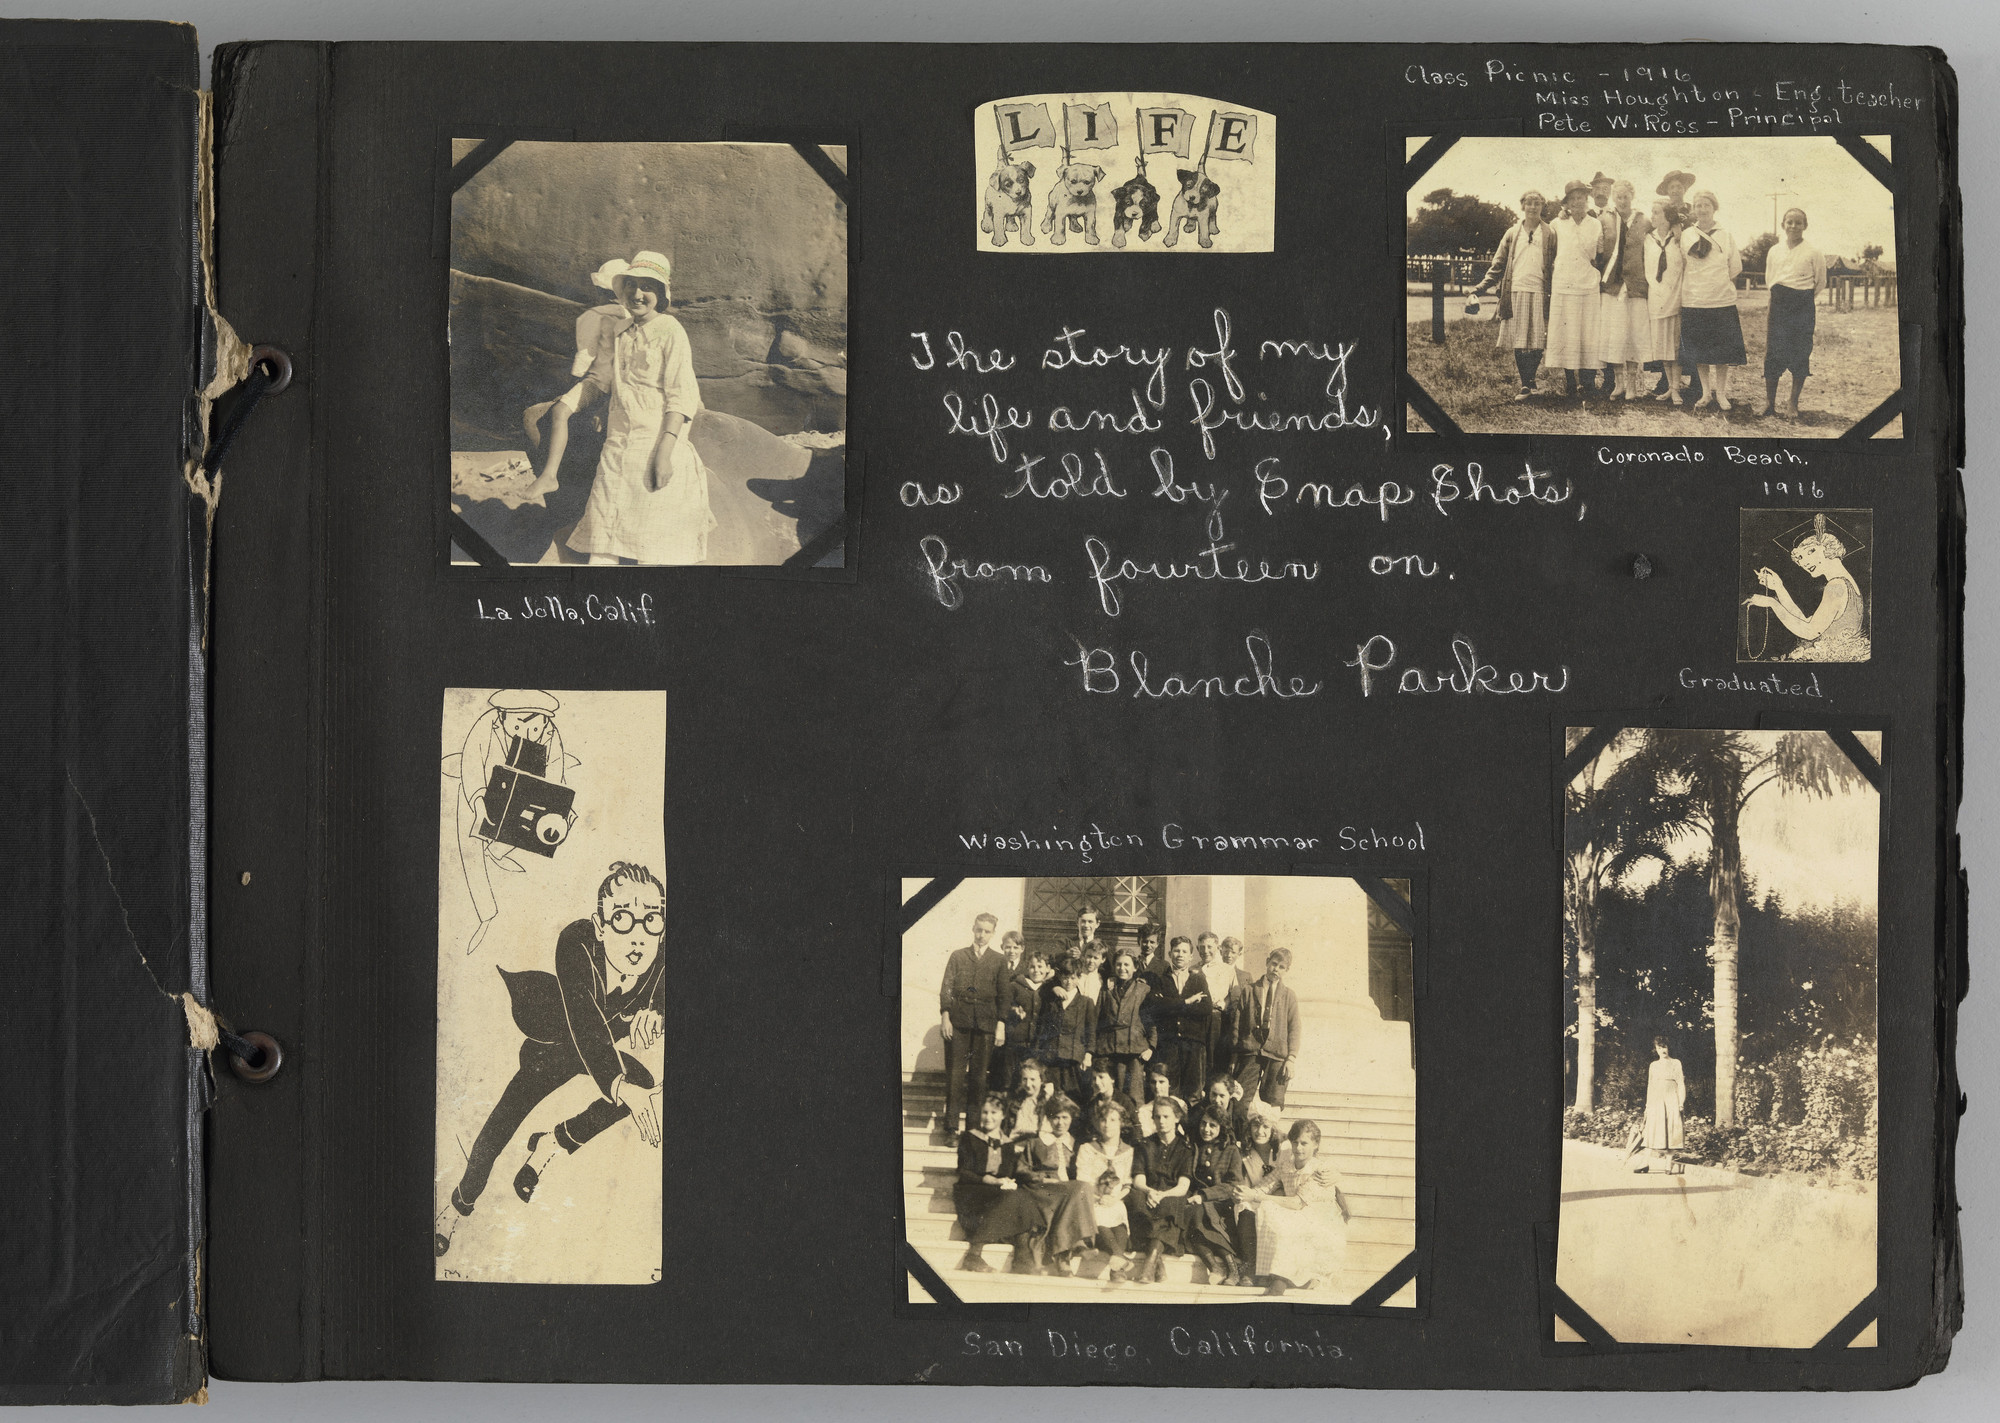 LIFE
Class Picnic - 1916
Miss Houghton - Eng. teacher
Pete W. Ross - Principal
The story of my
life and friends,
as told by Snap Shots,
from fourteen on.
Blanche Parker
Coronado Beach.
1916
La Jolla, Calif.
Graduated
Washington Grammar School
San Diego, California.